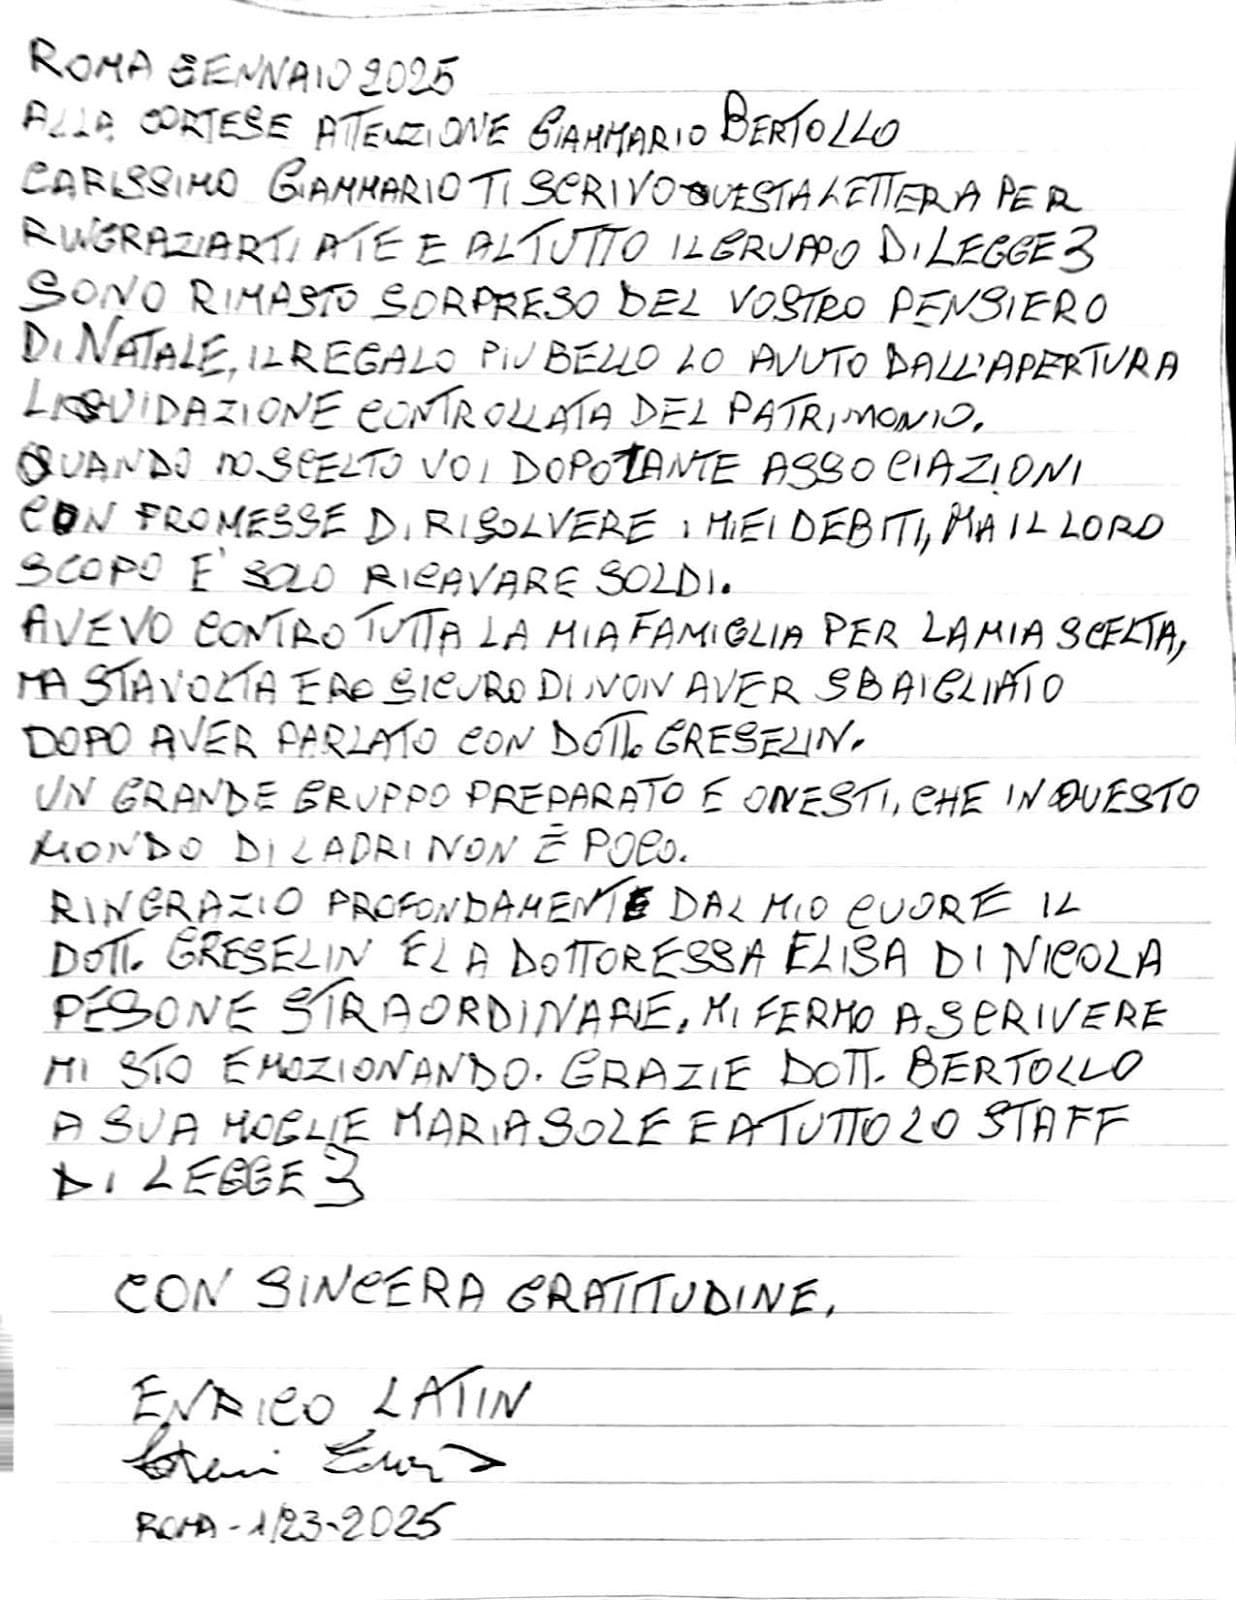 ROMA GENNAIO 2025
ALLA CORTESE ATTENZIONE GIAMMARIO BERTOLLO
CARISSIMO GIAMMARIO TI SCRIVO QUESTA LETTERA PER
RINGRAZIARTI A TE E AL TUTTO IL GRUPPO DI LEGGE 3
SONO RIMASTO SORPRESO DEL VOSTRO PENSIERO
DI NATALE, IL REGALO PIU BELLO LO AVUTO DALL'APERTURA
LIQUIDAZIONE CONTROLLATA DEL PATRIMONIO.
QUANDO HO SCELTO VOI DOPO TANTE ASSOCIAZIONI
CON PROMESSE DI RISOLVERE I MIEI DEBITI, MA IL LORO
SCOPO E' SOLO RICAVARE SOLDI.
AVEVO CONTRO TUTTA LA MIA FAMIGLIA PER LA MIA SCELTA,
MA STAVOLTA ERO SICURO DI NON AVER SBAIGLIATO
DOPO AVER PARLATO CON DOTT. GRESELIN.
UN GRANDE GRUPPO PREPARATO E ONESTI, CHE IN QUESTO
MONDO DI LADRI NON È POCO.
RINGRAZIO PROFONDAMENTE DAL MIO CUORE IL
DOTT. GRESELIN E LA DOTTORESSA ELISA DI NICOLA
PESONE STRAORDINARIE, MI FERMO A SCRIVERE
MI STO EMOZIONANDO. GRAZIE DOTT. BERTOLLO
A SUA MOGLIE MARIASOLE E A TUTTO LO STAFF
DI LEGGE 3
CON SINCERA GRATITUDINE,
ENRICO LATIN
ROMA - 1/23-2025